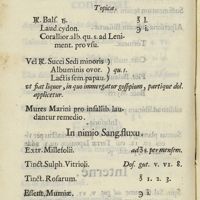 Topica.
℞. Balſ. ʒ I.
Laud. cydon. ℈ i.
Corallior. alb. qu. s. ad Leni-
ment. pro vſu.
Vel ℞. Succi Sedi minoris
Albuminis ovor. qu. s.
Lactis fem. papau.
ut fiat liquor, in quo immergatur goſsipium, partique dol.
applicetur.
Mures Marini pro infallib. lau-
dantur remedio.
In nimio Sang. fluxu.
Extr. Millefolii. ad ℈ s. per menſem.
Tinct. Sulph. Vitrioli. Doſ. gut. v. vi. 8.
Tinct. Roſarum. ʒ 1. 2. 3.
Eſſent. Mumiæ.